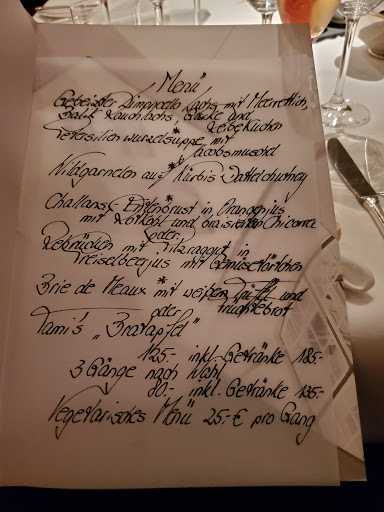 Menü
Gebeizter Limoncello Lachs mit Meerrettich,
Balik Rauchlachs, Gurke und
Reibekuchen
*
Petersilienwurzelsuppe mit
Jacobsmuschel
*
Wildgarnelen auf Kürbis Dattelchutney
*
Challans Entenbrust in Orangenjus
mit Rotkohl und braisiertem Chicorée
oder
Rehrücken mit Pilzragout in
Preiselbeerjus mit Gemüsetörtchen
*
Brie de Meaux mit weißem Trüffel und
Früchtebrot
oder
Tami's „Bratapfel"
125.- inkl. Getränke 185.-
3 Gänge nach Wahl
80.- inkl. Getränke 135.-
Vegetarisches Menü 25.-€ pro Gang